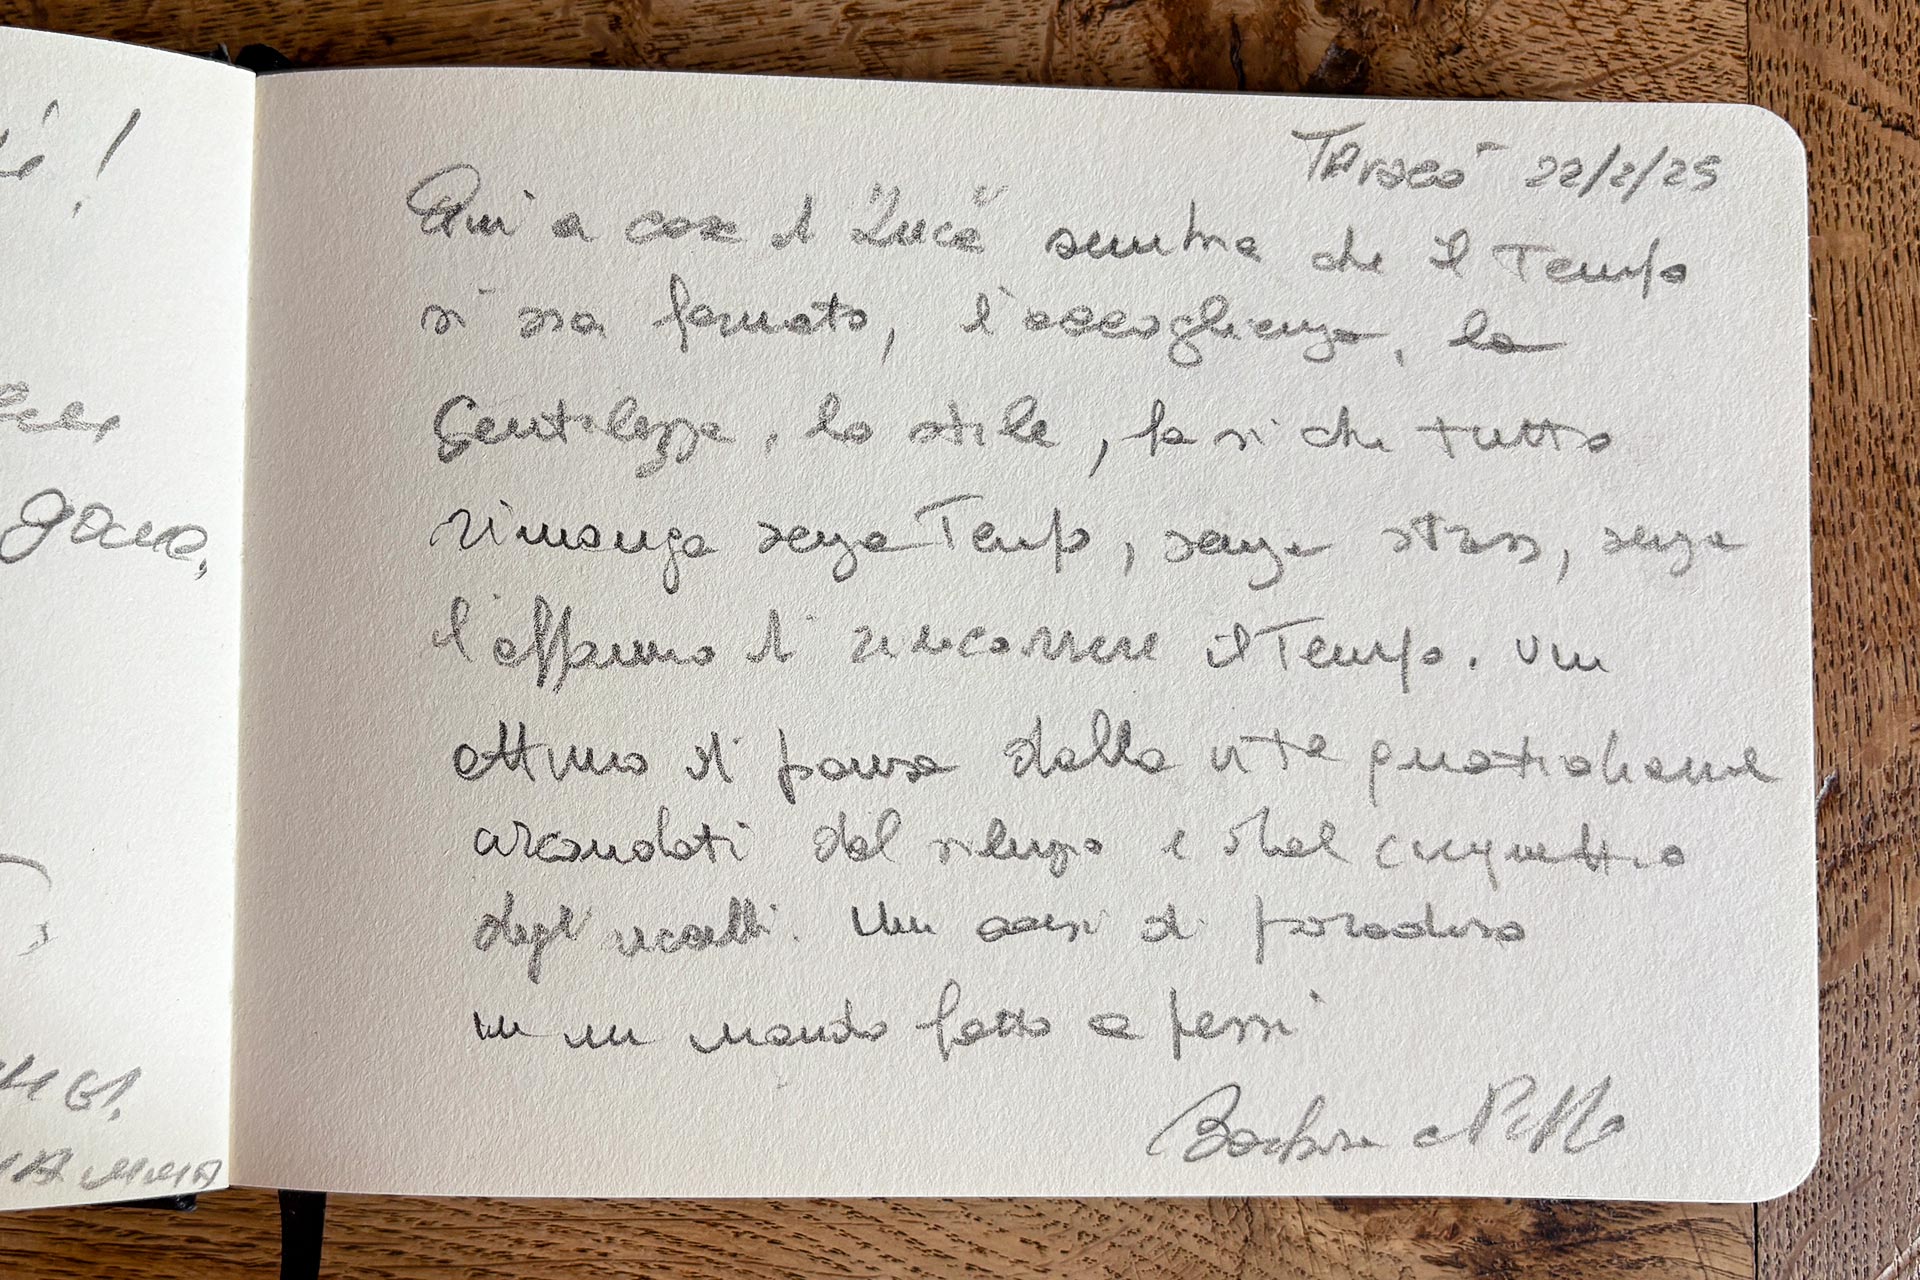 22/2/25
Qui a casa di "Luca" sembra che il Tempo
si sia fermato, l'accoglienza, la
Gentilezza, lo stile, fa si che tutto
rimanga senza Tempo, senza stress, senza
l'affanno di rincorrere il Tempo. Un
attimo di pausa dalla vita quotidiana
circondati dal silenzio e dal cinguettio
degli uccelli. Un oasi di paradiso
in un mondo fatto a pezzi
Barbara e
gana,